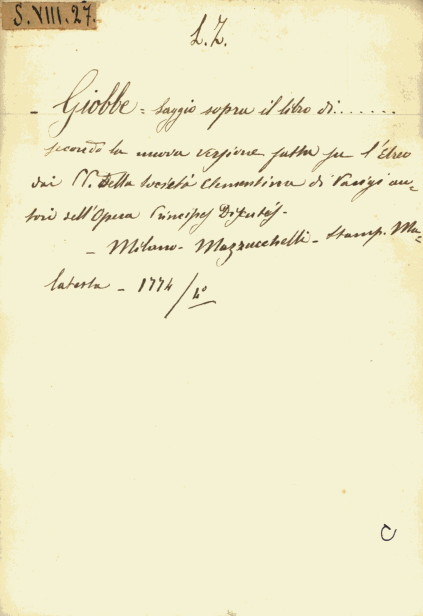 S. VIII. 27.
L. Z.
- Giobbe = Saggio sopra il libro di......
secondo la nuova versione fatta su l'Ebreo
dai PP. della Società Clementina di Parigi au-
tori dell'Opera Principes Discutés -
- Milano - Mazzucchelli - Stamp. Ma-
latesta - 1774 / 4º
C